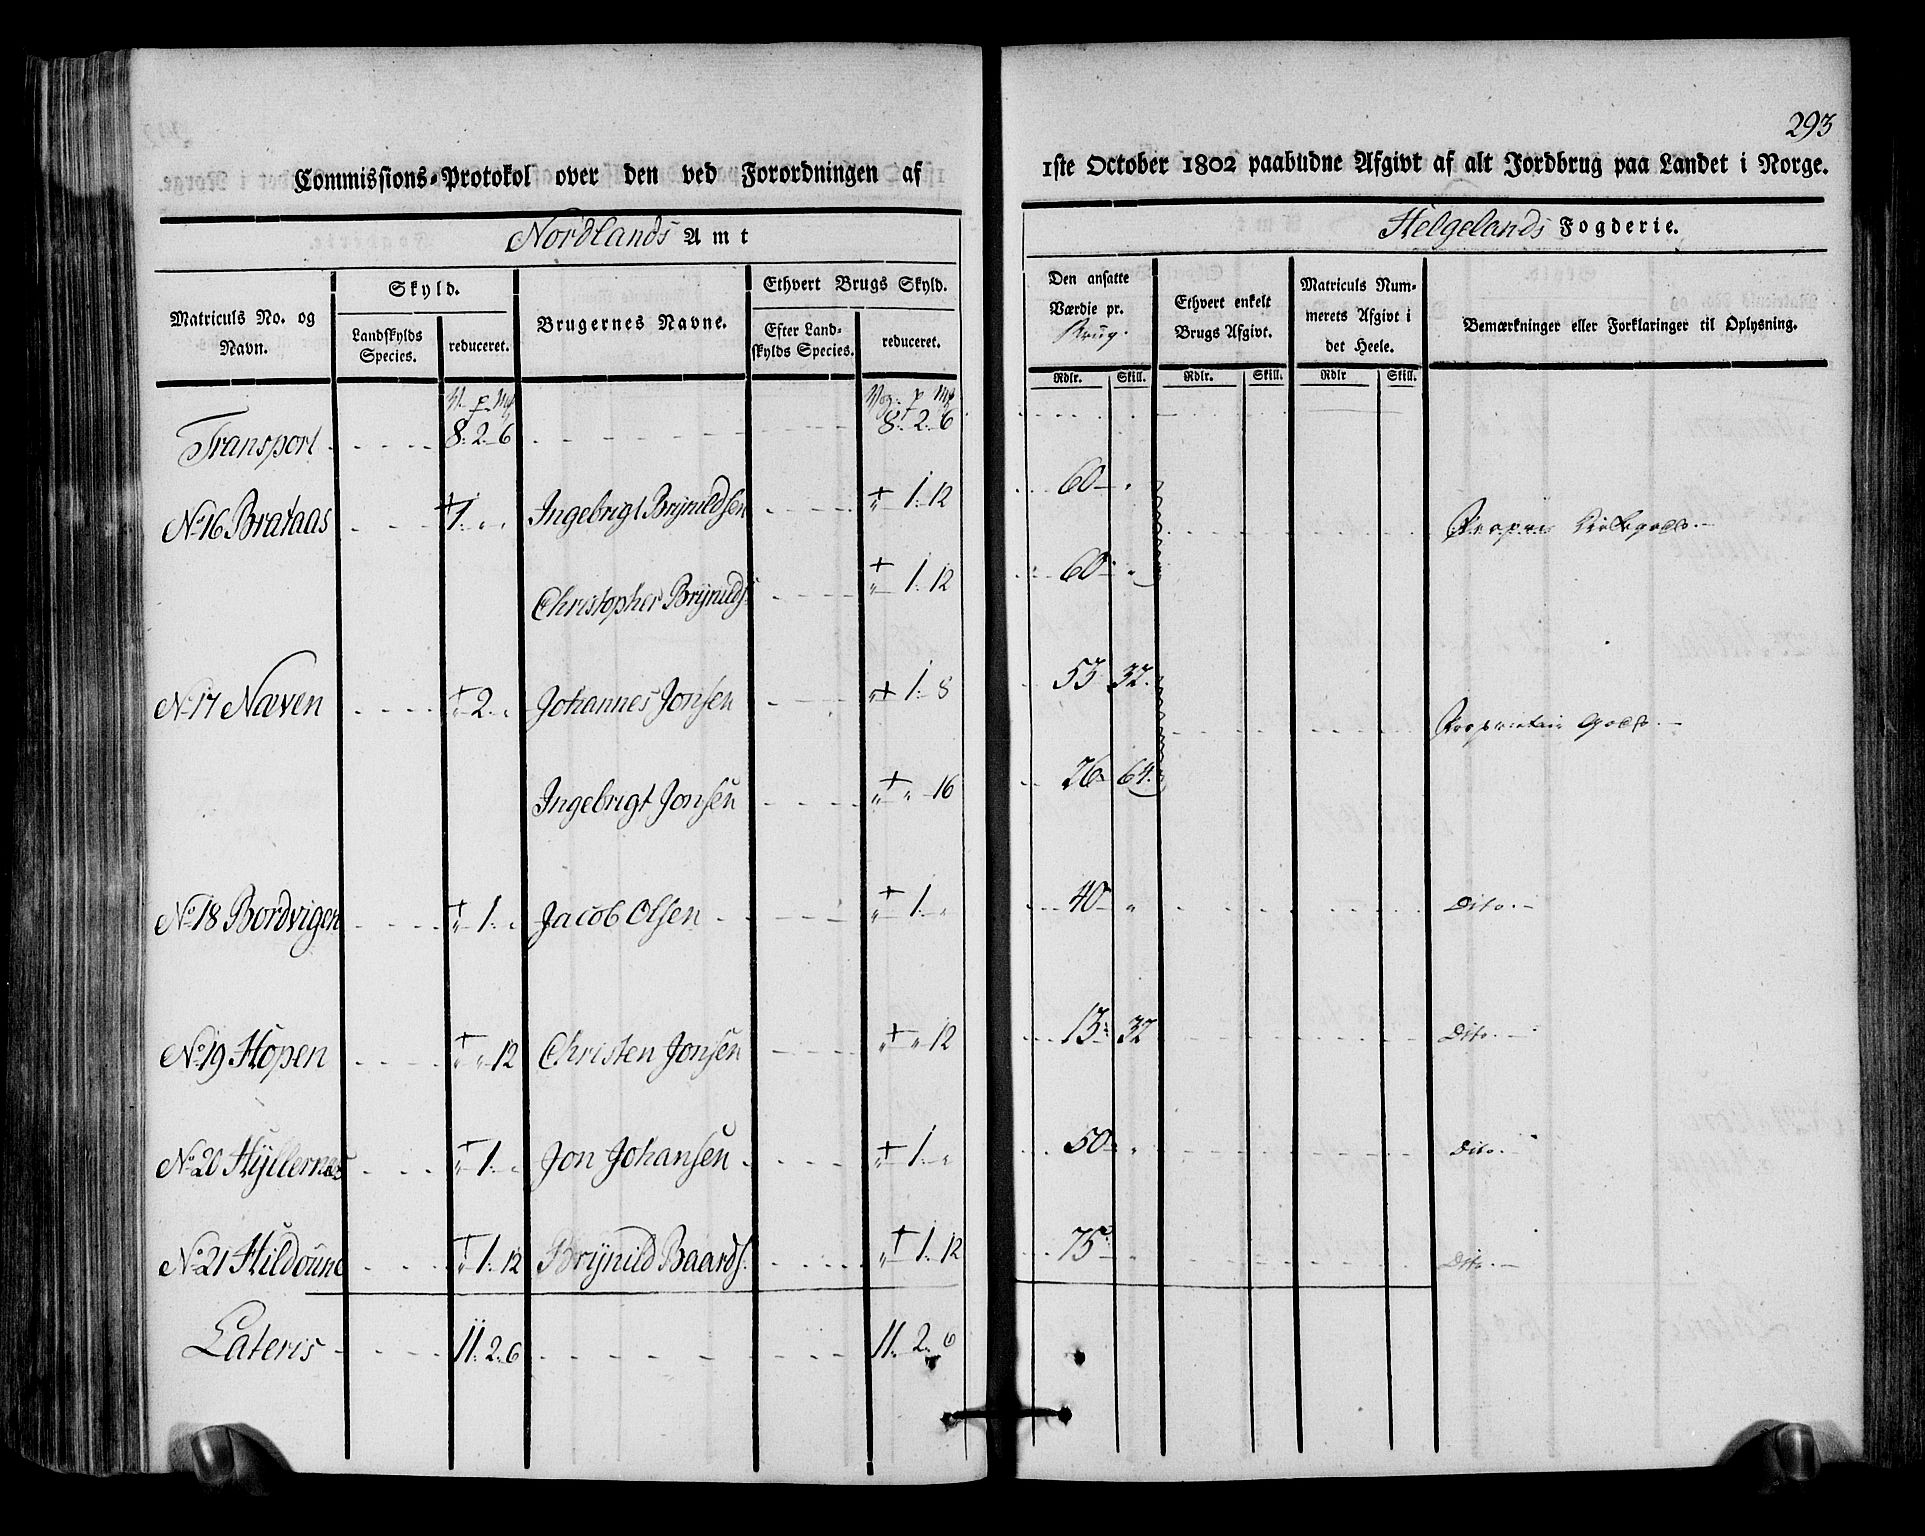 293
Commissions-Protokol over den ved Forordningen af 1ste October 1802 paabudne Afgivt af alt Jordbrug paa Landet i Norge.
Nordlands Amt
Helgelands Fogderie.
Matriculs No. og Navn.
Skyld.
Landskylds Species.
reduceret.
Brugernes Navne.
Ethvert Brugs Skyld.
Efter Landskylds Species.
reduceret.
Den ansatte Værdie pr. Brug.
Ethvert enkelt Brugs Afgivt.
Matriculs Nummerets Afgivt i det Heele.
Bemærkninger eller Forklaringer til Oplysning.
Rdlr. Skill. Rdlr. Skill. Rdlr Skill.
Transport 8. 2. 6 8. 2. 6
No 16 Brataas 1. Ingebrigt Brÿnildsen 1. 12 60
Christopher Brÿnilds. 1. 12 60
No 17 Næven 2. Johannes Jonsen 1. 8 53 32. Proprietair Gods.
Ingebrigt Jonsen 16 26 64.
No 18 Bordvigen 1. Jacob Olsen 1. 40 Dito.
No 19 Hopen 12 Christen Jonsen 12 13 32 Dito.
No 20 Hÿllernæs 1. Jon Johansen 1. 50 Dito.
No 21 Hildoune 1. 12 Brÿnild Baards. 1. 12 75 Dito.
Lateris 11. 2. 6 11. 2. 6